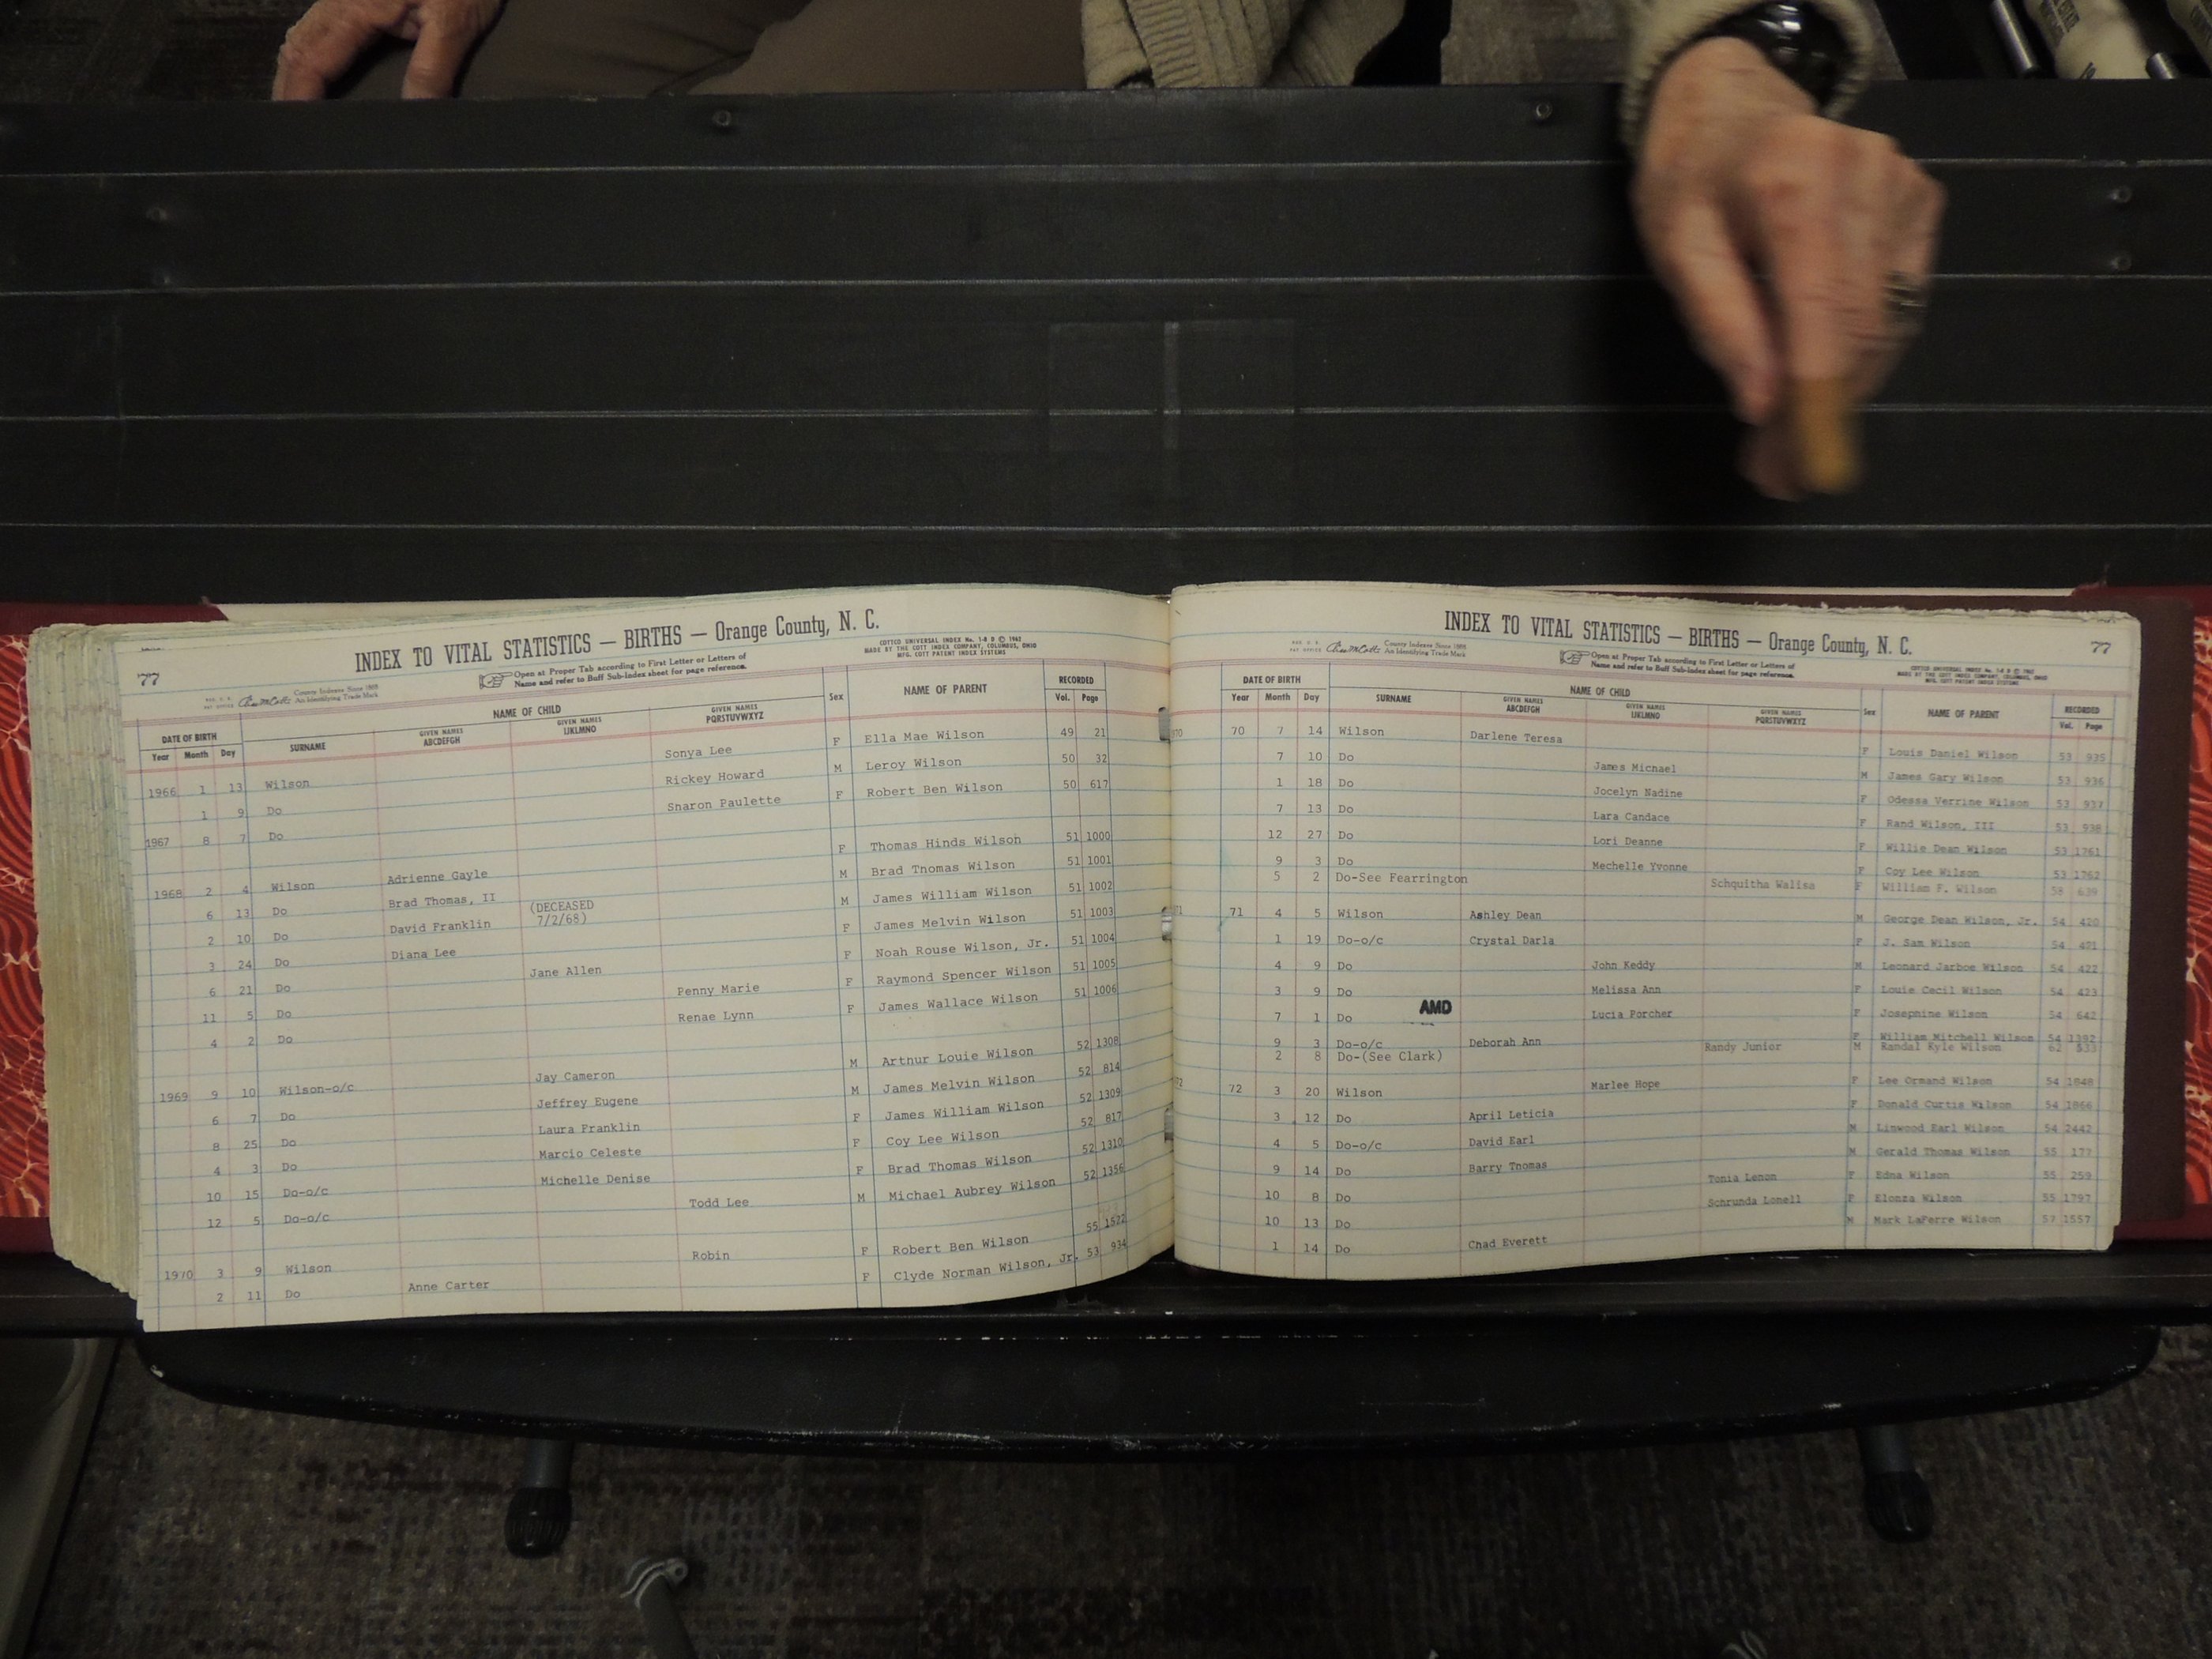 INDEX TO VITAL STATISTICS — BIRTHS — Orange County, N. C.
COTTCO UNIVERSAL INDEX No. 1-8 D © 1962
MADE BY THE COTT INDEX COMPANY, COLUMBUS, OHIO
MFG. COTT PATENT INDEX SYSTEMS
77
County Indexes Since 1888
An Identifying Trade Mark
Open at Proper Tab according to First Letter or Letters of
Name and refer to Buff Sub-Index sheet for page reference.
DATE OF BIRTH NAME OF CHILD Sex NAME OF PARENT RECORDED
Year Month Day SURNAME GIVEN NAMES ABCDEFGH GIVEN NAMES IJKLMNO GIVEN NAMES PQRSTUVWXYZ Vol. Page
1966 1 13 Wilson Sonya Lee F Ella Mae Wilson 49 21
1 9 Do Rickey Howard M Leroy Wilson 50 32
1967 8 7 Do Sharon Paulette F Robert Ben Wilson 50 617
1968 2 4 Wilson Adrienne Gayle F Thomas Hinds Wilson 51 1000
6 13 Do Brad Thomas, II (DECEASED 7/2/68) M Brad Thomas Wilson 51 1001
2 10 Do David Franklin M James William Wilson 51 1002
3 24 Do Diana Lee F James Melvin Wilson 51 1003
6 21 Do Jane Allen F Noah Rouse Wilson, Jr. 51 1004
11 5 Do Penny Marie F Raymond Spencer Wilson 51 1005
4 2 Do Renae Lynn F James Wallace Wilson 51 1006
1969 9 10 Wilson-o/c Jay Cameron M Arthur Louie Wilson 52 1308
6 7 Do Jeffrey Eugene M James Melvin Wilson 52 814
8 25 Do Laura Franklin F James William Wilson 52 1309
4 3 Do Marcio Celeste F Coy Lee Wilson 52 817
10 15 Do-o/c Michelle Denise F Brad Thomas Wilson 52 1310
12 5 Do-o/c Todd Lee M Michael Aubrey Wilson 52 1356
1970 3 9 Wilson Robin F Robert Ben Wilson 55 1572
2 11 Do Anne Carter F Clyde Norman Wilson, Jr. 53 934
INDEX TO VITAL STATISTICS — BIRTHS — Orange County, N. C.
77
County Indexes Since 1888
An Identifying Trade Mark
Open at Proper Tab according to First Letter or Letters of
Name and refer to Buff Sub-Index sheet for page reference.
COTTCO UNIVERSAL INDEX No. 1-8 D © 1962
MADE BY THE COTT INDEX COMPANY, COLUMBUS, OHIO
MFG. COTT PATENT INDEX SYSTEMS
DATE OF BIRTH NAME OF CHILD Sex NAME OF PARENT RECORDED
Year Month Day SURNAME GIVEN NAMES ABCDEFGH GIVEN NAMES IJKLMNO GIVEN NAMES PQRSTUVWXYZ Vol. Page
70 7 14 Wilson Darlene Teresa F Louis Daniel Wilson 53 935
7 10 Do James Michael M James Gary Wilson 53 936
1 18 Do Jocelyn Nadine F Odessa Verrine Wilson 53 937
7 13 Do Lara Candace F Rand Wilson, III 53 938
12 27 Do Lori Deanne F Willie Dean Wilson 53 1761
9 3 Do Mechelle Yvonne F Coy Lee Wilson 53 1762
5 2 Do-See Fearrington Schquitha Walisa F William F. Wilson 58 639
71 4 5 Wilson Ashley Dean M George Dean Wilson, Jr. 54 420
1 19 Do-o/c Crystal Darla F J. Sam Wilson 54 421
4 9 Do John Keddy M Leonard Jarboe Wilson 54 422
3 9 Do Melissa Ann F Louie Cecil Wilson 54 423
7 1 Do AMD Lucia Porcher F Josephine Wilson 54 642
9 3 Do-o/c Deborah Ann F William Mitchell Wilson 54 1392
2 8 Do-(See Clark) Randy Junior M Randal Kyle Wilson 62 533
72 3 20 Wilson Marlee Hope F Lee Ormand Wilson 54 1848
3 12 Do April Leticia F Donald Curtis Wilson 54 1866
4 5 Do-o/c David Earl M Linwood Earl Wilson 54 2442
9 14 Do Barry Thomas M Gerald Thomas Wilson 55 177
10 8 Do Tonia Lenon F Edna Wilson 55 259
10 13 Do Schrunda Lonell F Elonza Wilson 55 1797
1 14 Do Chad Everett M Mark LaFerre Wilson 57 1557